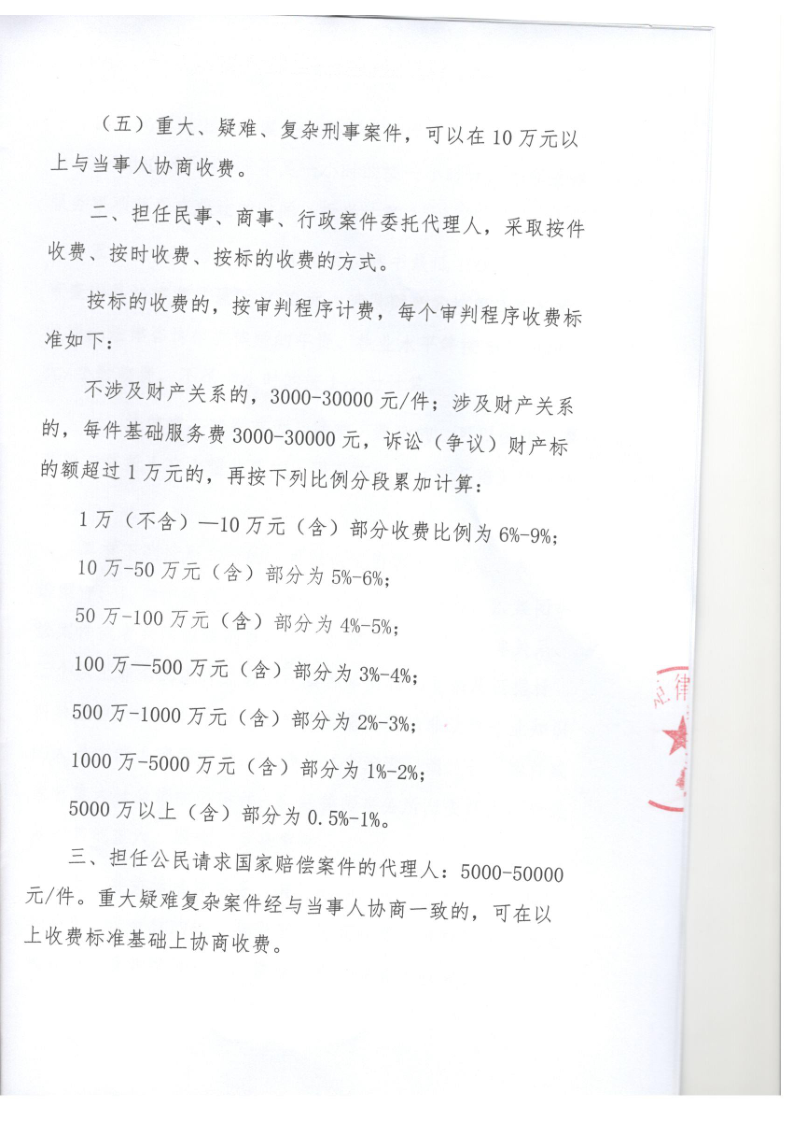 （五）重大、疑难、复杂刑事案件，可以在 10 万元以
上与当事人协商收费。
二、担任民事、商事、行政案件委托代理人，采取按件
收费、按时收费、按标的收费的方式。
按标的收费的，按审判程序计费，每个审判程序收费标
准如下：
不涉及财产关系的，3000-30000 元/件；涉及财产关系
的，每件基础服务费 3000-30000 元，诉讼（争议）财产标
的额超过 1 万元的，再按下列比例分段累加计算：
1 万（不含）—10 万元（含）部分收费比例为 6%-9%；
10 万-50 万元（含）部分为 5%-6%；
50 万-100 万元（含）部分为 4%-5%；
100 万—500 万元（含）部分为 3%-4%；
500 万-1000 万元（含）部分为 2%-3%；
1000 万-5000 万元（含）部分为 1%-2%；
5000 万以上（含）部分为 0.5%-1%。
三、担任公民请求国家赔偿案件的代理人：5000-50000
元/件。重大疑难复杂案件经与当事人协商一致的，可在以
上收费标准基础上协商收费。
律